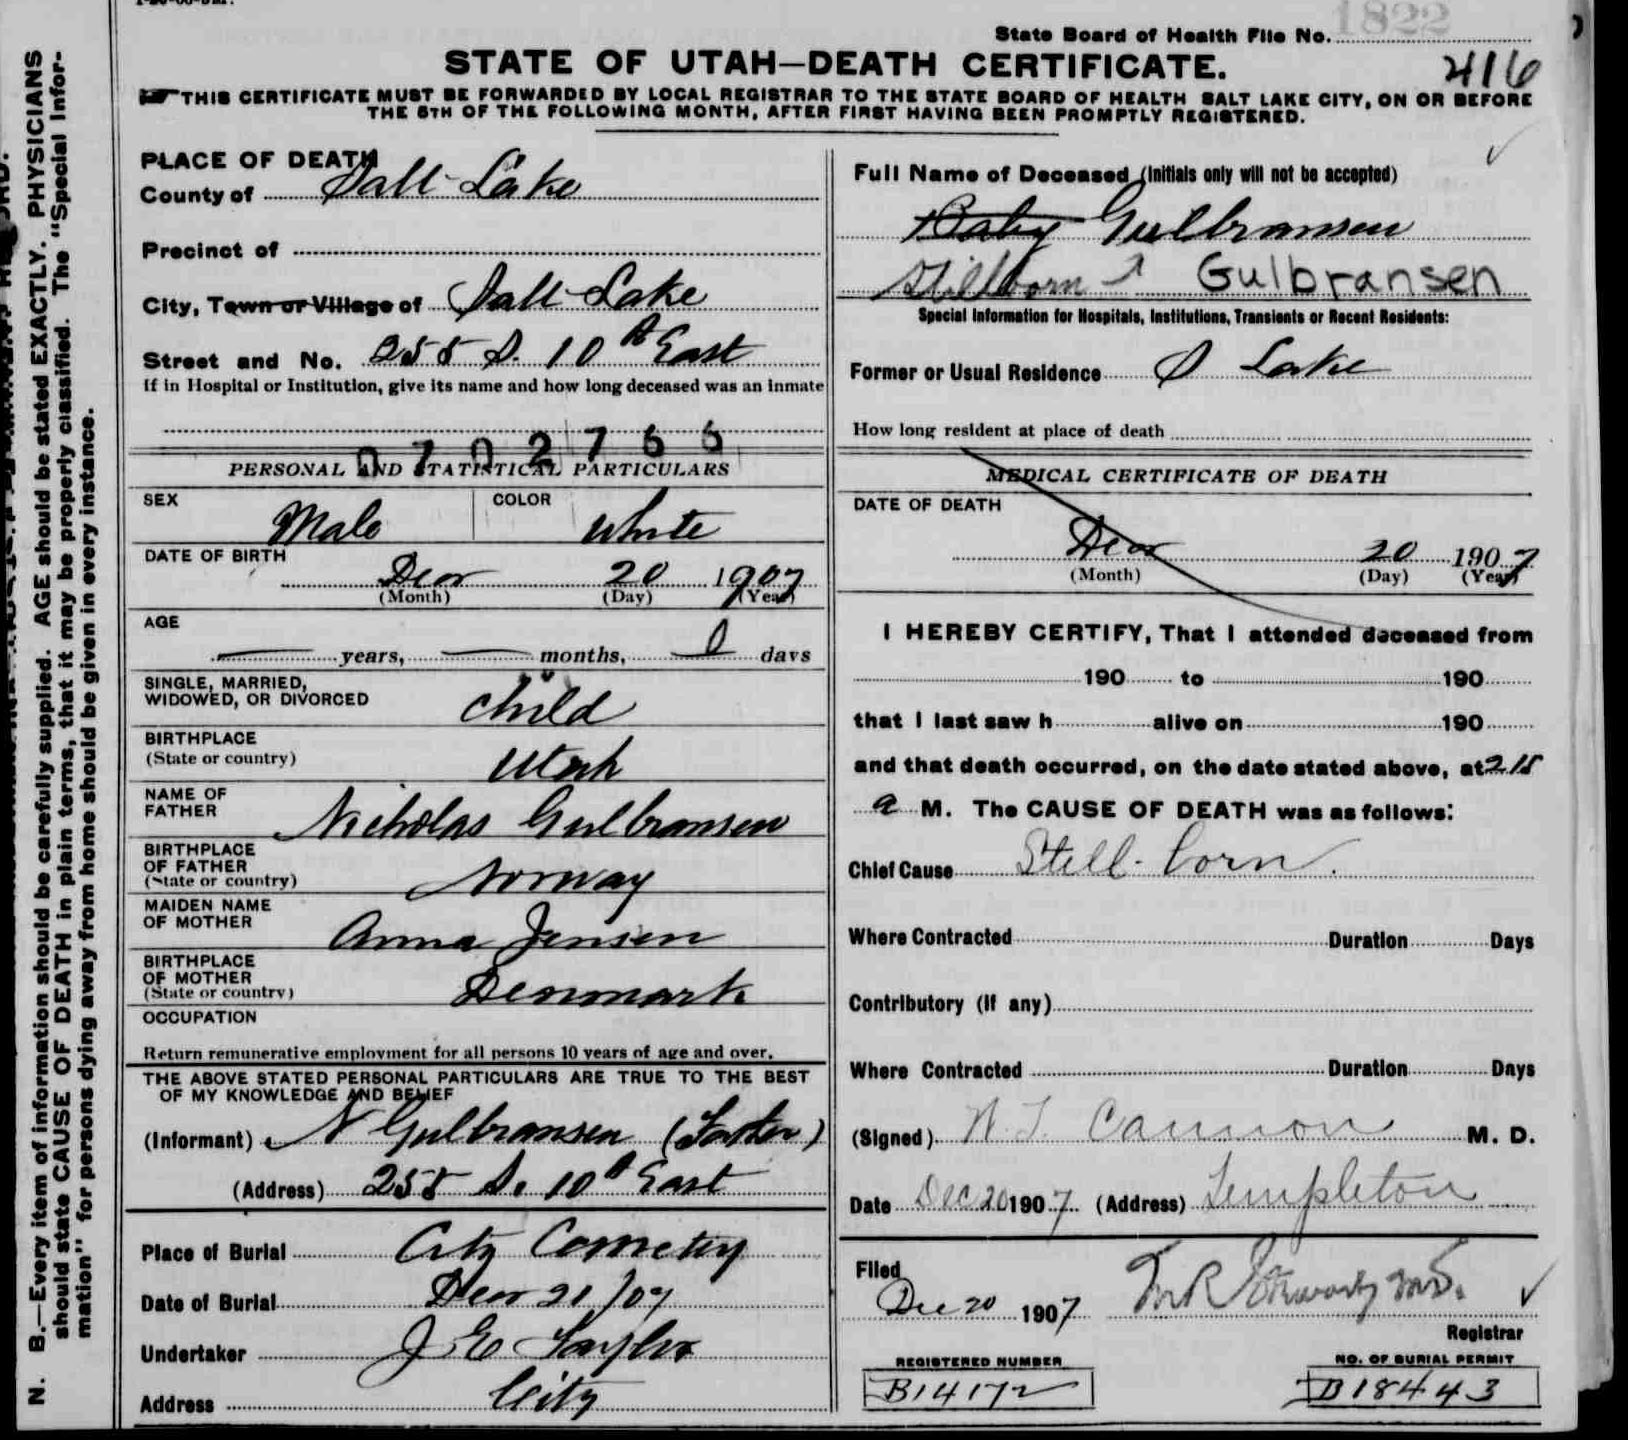 State Board of Health File No. 1822
STATE OF UTAH—DEATH CERTIFICATE.
416
THIS CERTIFICATE MUST BE FORWARDED BY LOCAL REGISTRAR TO THE STATE BOARD OF HEALTH SALT LAKE CITY, ON OR BEFORE
THE 5TH OF THE FOLLOWING MONTH, AFTER FIRST HAVING BEEN PROMPTLY REGISTERED.
PLACE OF DEATH
County of Salt Lake
Precinct of
City, Town or Village of Salt Lake
Street and No. 255 S. 10th East
If in Hospital or Institution, give its name and how long deceased was an inmate
0702766
PERSONAL AND STATISTICAL PARTICULARS
SEX Male COLOR White
DATE OF BIRTH
Decr 20 1907
(Month) (Day) (Year)
AGE
years, months, 0 days
SINGLE, MARRIED,
WIDOWED, OR DIVORCED child
BIRTHPLACE
(State or country) Utah
NAME OF
FATHER Nicholas Gulbransen
BIRTHPLACE
OF FATHER
(State or country) Norway
MAIDEN NAME
OF MOTHER Anna Jensen
BIRTHPLACE
OF MOTHER
(State or country) Denmark
OCCUPATION
Return remunerative employment for all persons 10 years of age and over.
THE ABOVE STATED PERSONAL PARTICULARS ARE TRUE TO THE BEST
OF MY KNOWLEDGE AND BELIEF
(Informant) N Gulbransen (Father)
(Address) 255 S. 10th East
Place of Burial City Cemetery
Date of Burial Decr 21/07
Undertaker J E Taylor
Address City
Full Name of Deceased (Initials only will not be accepted)
Baby Gulbransen
Stillborn Gulbransen
Special Information for Hospitals, Institutions, Transients or Recent Residents:
Former or Usual Residence S Lake
How long resident at place of death
MEDICAL CERTIFICATE OF DEATH
DATE OF DEATH
Decr 20 1907
(Month) (Day) (Year)
I HEREBY CERTIFY, That I attended deceased from
190 to 190
that I last saw h alive on 190
and that death occurred, on the date stated above, at 2 15
a M. The CAUSE OF DEATH was as follows:
Chief Cause Still-born.
Where Contracted Duration Days
Contributory (if any)
Where Contracted Duration Days
(Signed) W. T. Cannon M. D.
Date Dec 20 1907 (Address) Templeton
Filed
Dec 20 1907
Registrar
REGISTERED NUMBER
B14172
NO. OF BURIAL PERMIT
B18443
N. B.—Every item of information should be carefully supplied. AGE should be stated EXACTLY. PHYSICIANS
should state CAUSE OF DEATH in plain terms, that it may be properly classified. The "Special Infor-
mation" for persons dying away from home should be given in every instance.